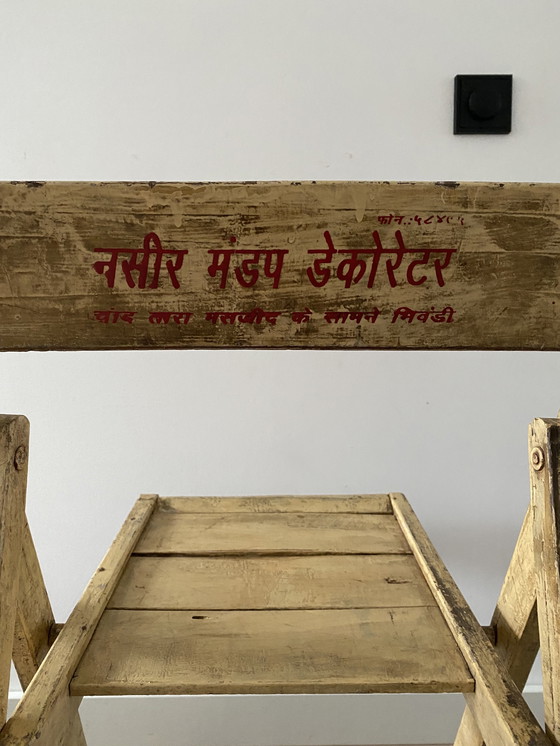 फोन.:५८४९५
नसीर मंडप डेकोरेटर
चाद तारा मसजीद के सामने भिवंडी